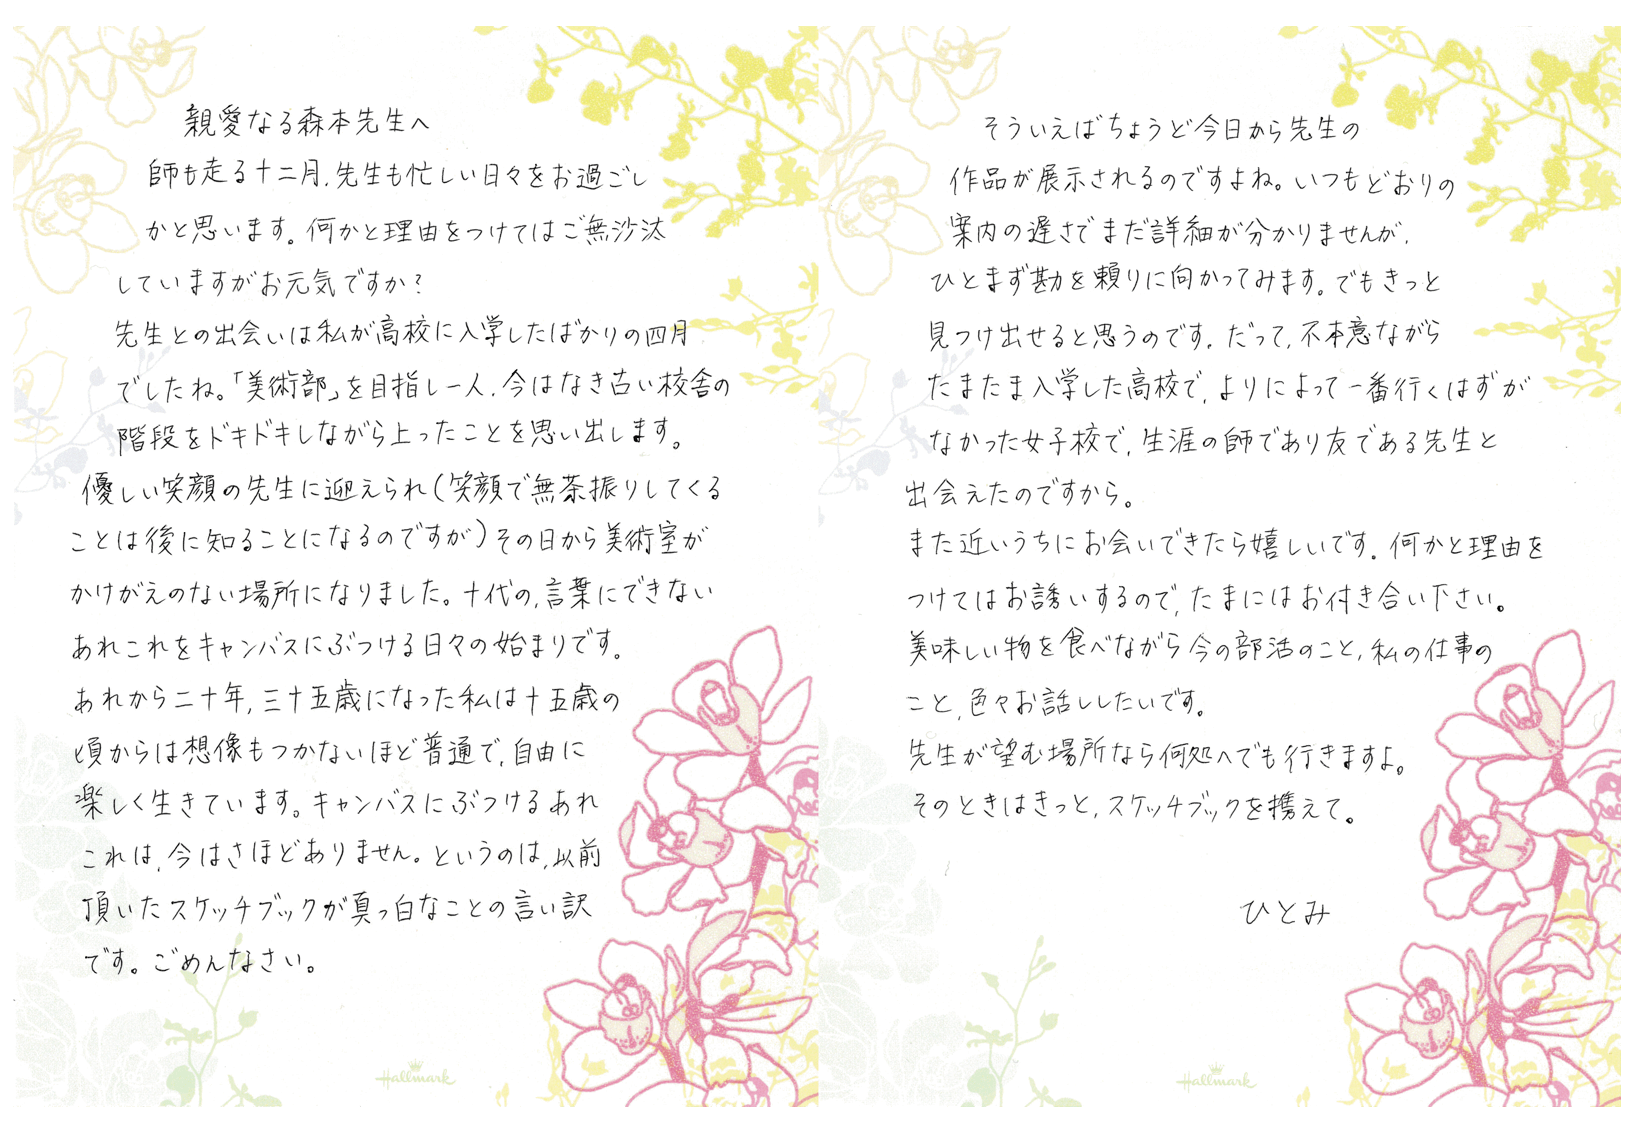 親愛なる森本先生へ
師も走る十二月、先生も忙しい日々をお過ごし
かと思います。何かと理由をつけてはご無沙汰
していますがお元気ですか?
先生との出会いは私が高校に入学したばかりの四月
でしたね。「美術部」を目指し一人、今はなき古い校舎の
階段をドキドキしながら上ったことを思い出します。
優しい笑顔の先生に迎えられ(笑顔で無茶振りしてくる
ことは後に知ることになるのですが)その日から美術室が
かけがえのない場所になりました。十代の、言葉にできない
あれこれをキャンバスにぶつける日々の始まりです。
あれから二十年、三十五歳になった私は十五歳の
頃からは想像もつかないほど普通で、自由に
楽しく生きています。キャンバスにぶつけるあれ
これは、今はさほどありません。というのは、以前
頂いたスケッチブックが真っ白なことの言い訳
です。ごめんなさい。
Hallmark
そういえばちょうど今日から先生の
作品が展示されるのですよね。いつもどおりの
案内の遅さでまだ詳細が分かりませんが、
ひとまず勘を頼りに向かってみます。でもきっと
見つけ出せると思うのです。だって、不本意ながら
たまたま入学した高校で、よりによって一番行くはずが
なかった女子校で、生涯の師であり友である先生と
出会えたのですから。
また近いうちにお会いできたら嬉しいです。何かと理由を
つけてはお誘いするので、たまにはお付き合い下さい。
美味しい物を食べながら今の部活のこと、私の仕事の
こと、色々お話ししたいです。
先生が望む場所なら何処へでも行きますよ。
そのときはきっと、スケッチブックを携えて。
ひとみ
Hallmark